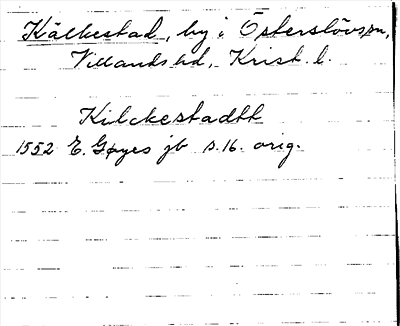 Kälkestad, by i Österslövs sn,
Villands hd, Krist. l.
Kilckestadtt
1552 E. Gøyes jb s.16. orig.